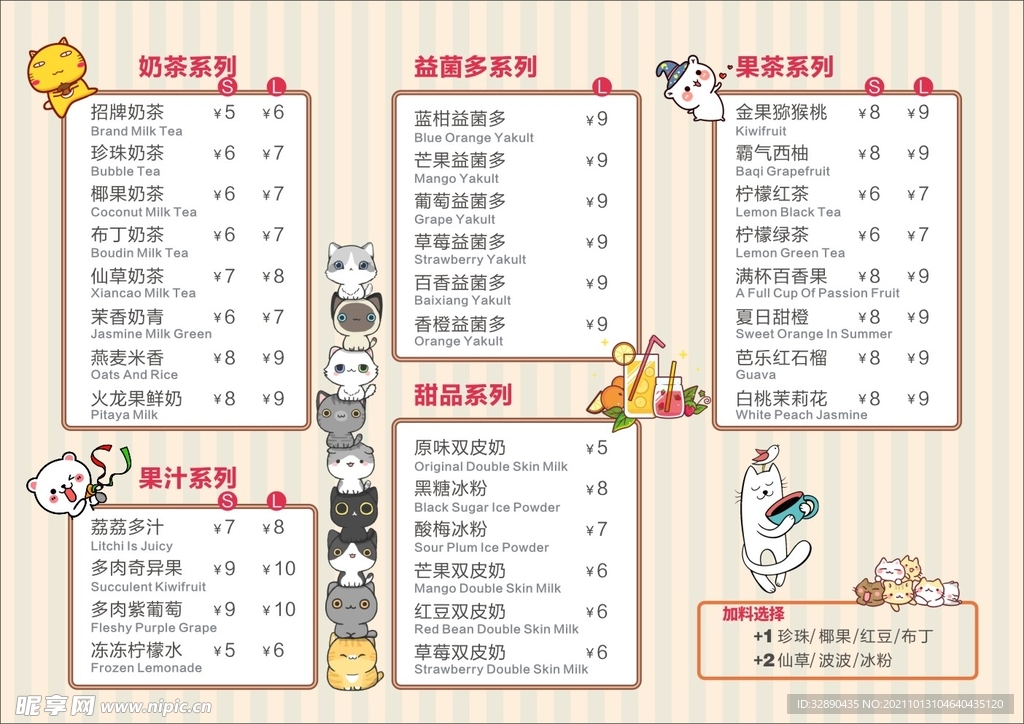 奶茶系列
S L
招牌奶茶 ¥5 ¥6
Brand Milk Tea
珍珠奶茶 ¥6 ¥7
Bubble Tea
椰果奶茶 ¥6 ¥7
Coconut Milk Tea
布丁奶茶 ¥6 ¥7
Boudin Milk Tea
仙草奶茶 ¥7 ¥8
Xiancao Milk Tea
茉香奶青 ¥6 ¥7
Jasmine Milk Green
燕麦米香 ¥8 ¥9
Oats And Rice
火龙果鲜奶 ¥8 ¥9
Pitaya Milk
果汁系列
S L
荔荔多汁 ¥7 ¥8
Litchi Is Juicy
多肉奇异果 ¥9 ¥10
Succulent Kiwifruit
多肉紫葡萄 ¥9 ¥10
Fleshy Purple Grape
冻冻柠檬水 ¥5 ¥6
Frozen Lemonade
益菌多系列
L
蓝柑益菌多 ¥9
Blue Orange Yakult
芒果益菌多 ¥9
Mango Yakult
葡萄益菌多 ¥9
Grape Yakult
草莓益菌多 ¥9
Strawberry Yakult
百香益菌多 ¥9
Baixiang Yakult
香橙益菌多 ¥9
Orange Yakult
甜品系列
原味双皮奶 ¥5
Original Double Skin Milk
黑糖冰粉 ¥8
Black Sugar Ice Powder
酸梅冰粉 ¥7
Sour Plum Ice Powder
芒果双皮奶 ¥6
Mango Double Skin Milk
红豆双皮奶 ¥6
Red Bean Double Skin Milk
草莓双皮奶 ¥6
Strawberry Double Skin Milk
果茶系列
S L
金果猕猴桃 ¥8 ¥9
Kiwifruit
霸气西柚 ¥8 ¥9
Baqi Grapefruit
柠檬红茶 ¥6 ¥7
Lemon Black Tea
柠檬绿茶 ¥6 ¥7
Lemon Green Tea
满杯百香果 ¥8 ¥9
A Full Cup Of Passion Fruit
夏日甜橙 ¥8 ¥9
Sweet Orange In Summer
芭乐红石榴 ¥8 ¥9
Guava
白桃茉莉花 ¥8 ¥9
White Peach Jasmine
加料选择
+1 珍珠/椰果/红豆/布丁
+2 仙草/波波/冰粉
昵享网 www.nipic.cn
ID:32890435 NO:20211013104640435120